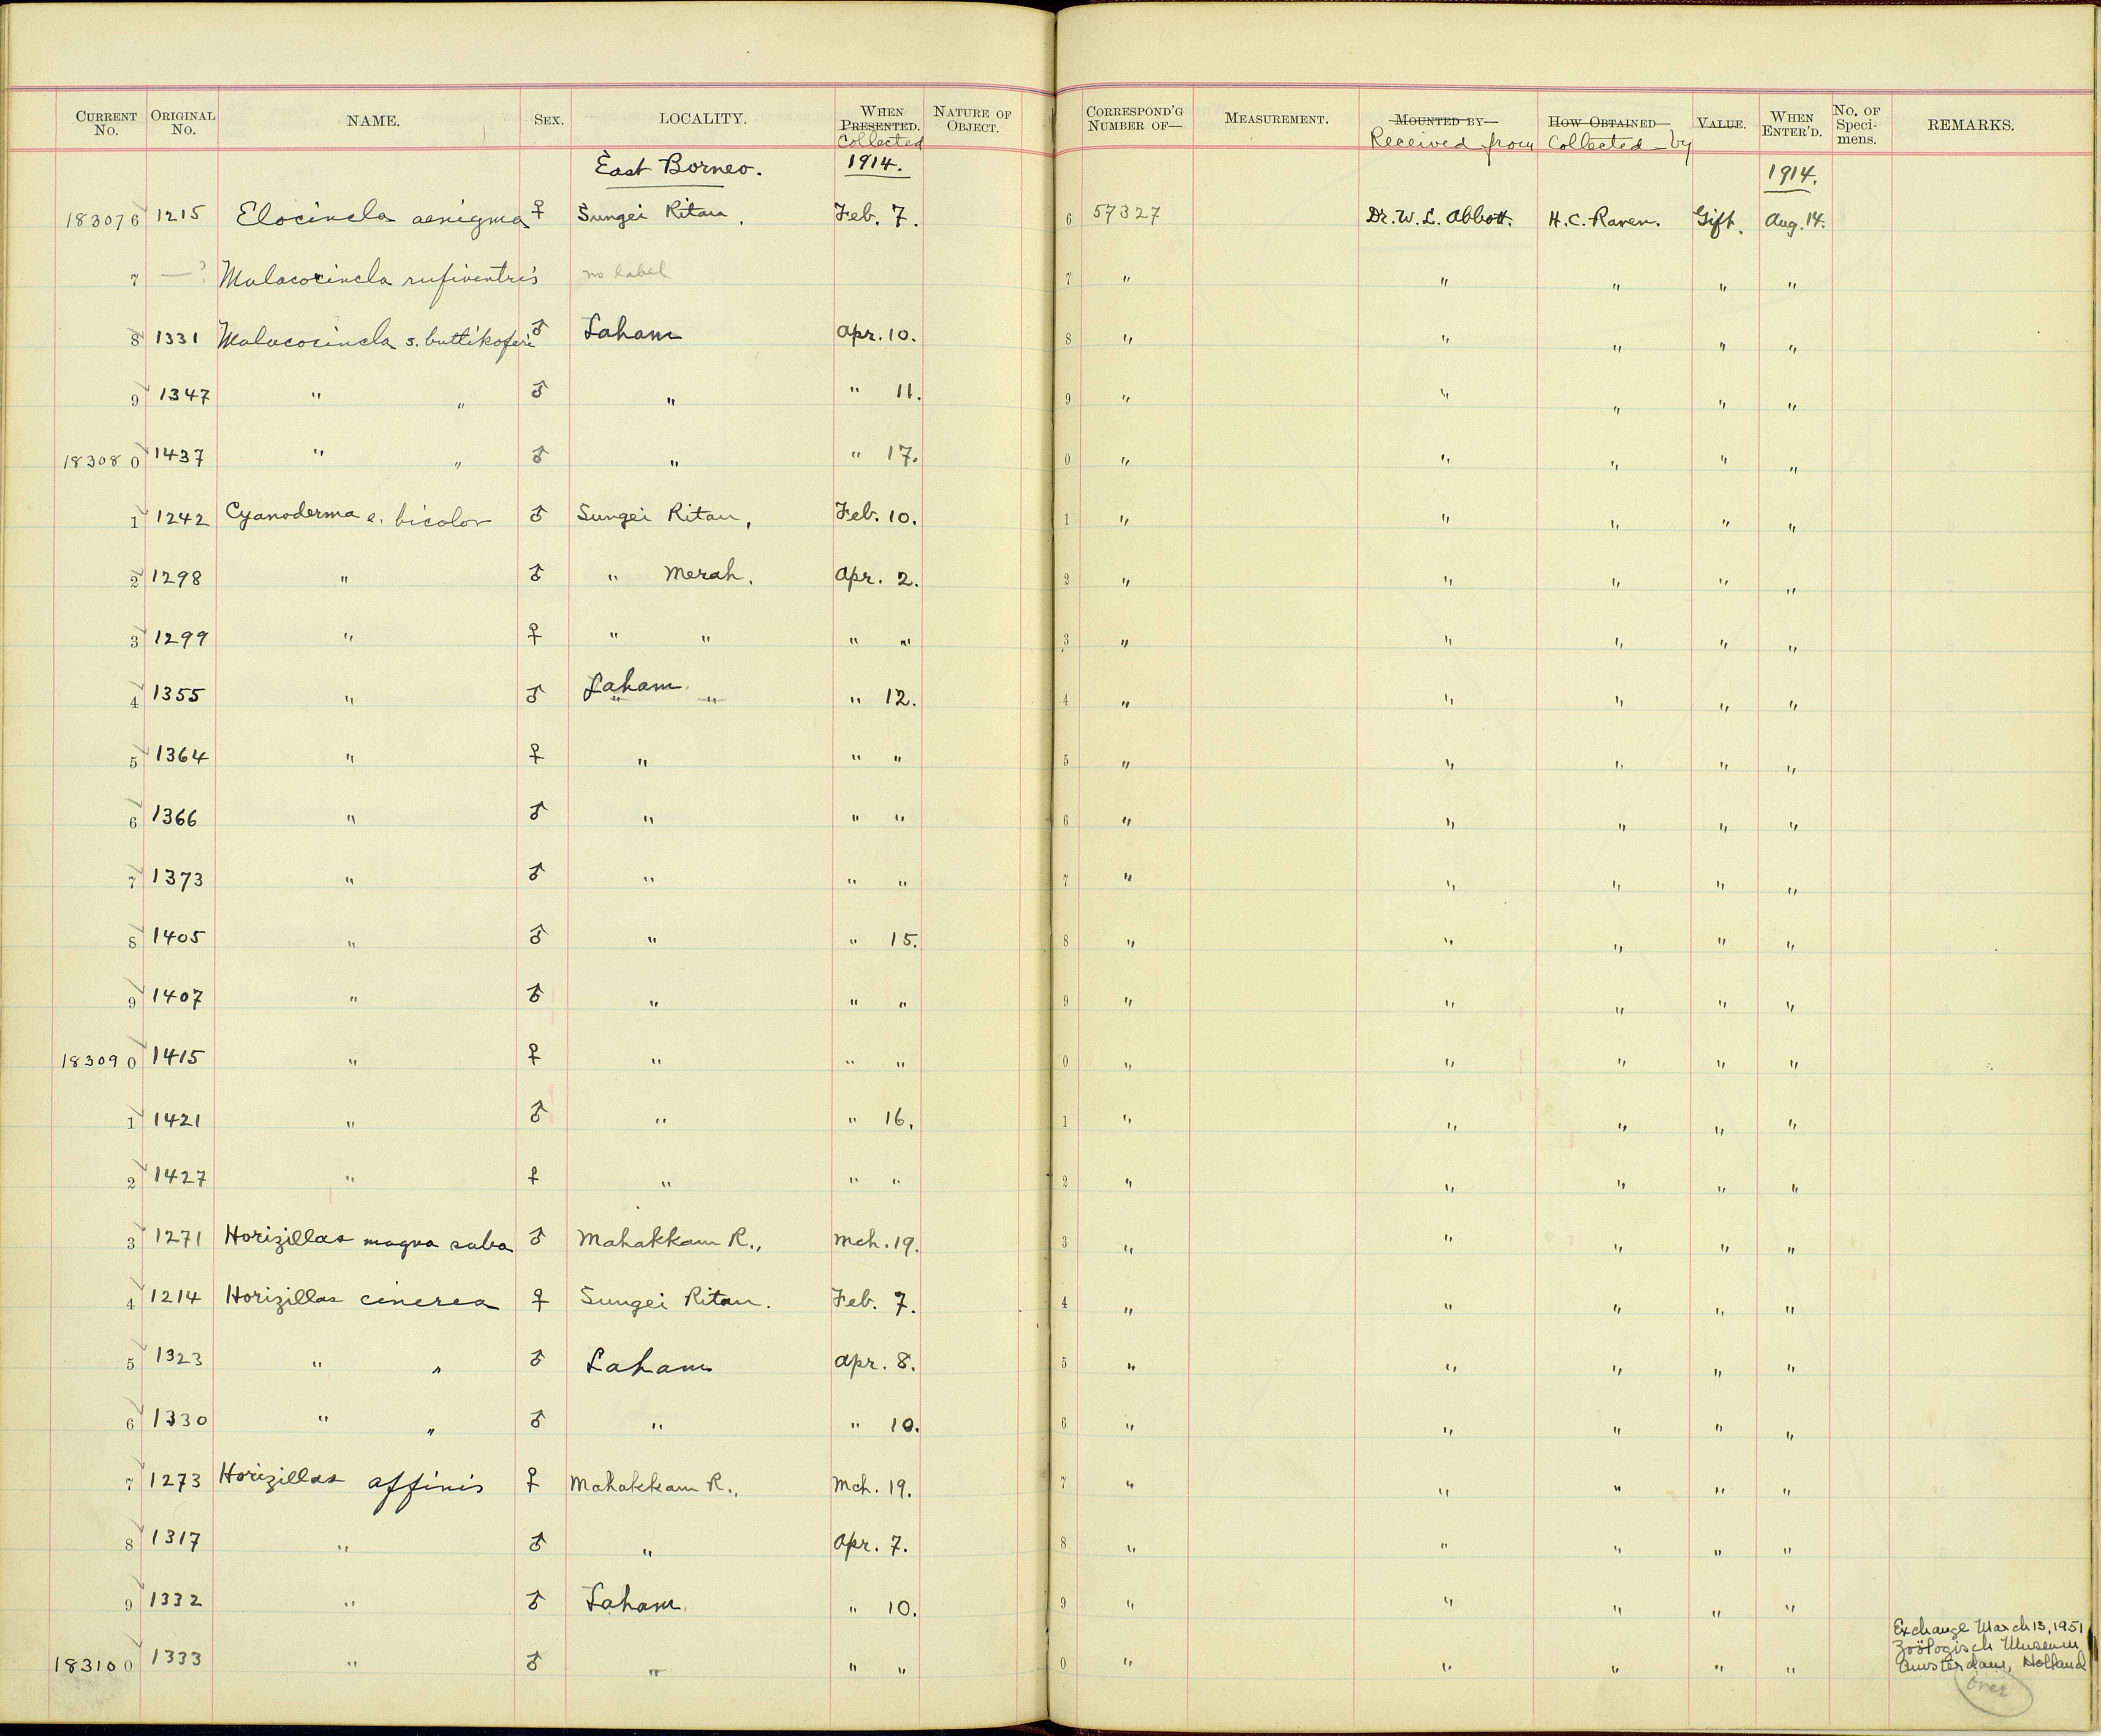 CURRENT No. ORIGINAL No. NAME. SEX. LOCALITY. WHEN PRESENTED. Collected NATURE OF OBJECT. CORRESPOND'G NUMBER OF— MEASUREMENT. MOUNTED BY— Received from HOW OBTAINED— Collected by VALUE. WHEN ENTER'D. No. OF Speci-mens. REMARKS.
East Borneo. 1914. 1914.
183076 1215 Elocincla aenigma ♀ Sungei Ritan, Feb. 7. 6 57327 Dr. W. L. Abbott. H. C. Raven. Gift. Aug. 14.
7 —? Malacocincla rufiventris no label 7 " " " " "
8 1331 Malacocincla s. buttikoferi ♂ Laham Apr. 10. 8 " " " " "
9 1347 " " ♂ " " 11. 9 " " " " "
183080 1437 " " ♂ " " 17. 0 " " " " "
1 1242 Cyanoderma e. bicolor ♂ Sungei Ritan, Feb. 10. 1 " " " " "
2 1298 " ♂ " Merah. Apr. 2. 2 " " " " "
3 1299 " ♀ " " " " 3 " " " " "
4 1355 " ♂ Laham " " " 12. 4 " " " " "
5 1364 " ♀ " " " 5 " " " " "
6 1366 " ♂ " " " 6 " " " " "
7 1373 " ♂ " " " 7 " " " " "
8 1405 " ♂ " " 15. 8 " " " " "
9 1407 " ♂ " " " 9 " " " " "
183090 1415 " ♀ " " " 0 " " " " "
1 1421 " ♂ " " 16. 1 " " " " "
2 1427 " ♀ " " " 2 " " " " "
3 1271 Horizillas magna saba ♂ Mahakkam R., Mch. 19. 3 " " " " "
4 1214 Horizillas cinerea ♀ Sungei Ritan. Feb. 7. 4 " " " " "
5 1323 " " ♂ Laham Apr. 8. 5 " " " " "
6 1330 " " ♂ " " 10. 6 " " " " "
7 1273 Horizillas affinis ♀ Mahakkam R., Mch. 19. 7 " " " " "
8 1317 " ♂ " Apr. 7. 8 " " " " "
9 1332 " ♂ Laham " 10. 9 " " " " "
183100 1333 " ♂ " " " 0 " " " " "
Exchange March 13, 1951
Zoölogisch Museum
Amsterdam, Holland
over